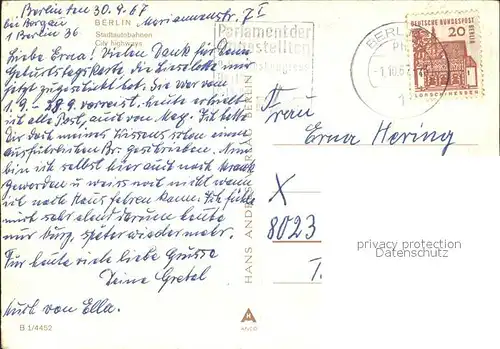 Berlin den 30.9.67
bei Borgau Mariannenstr. 7 I
1 Berlin 36
BERLIN
Stadtautobahnen
City highways
Liebe Erna! Vielen Dank für Deine
Geburtstagskarte, die Lieselotte mir
jetzt zugeschickt hat. Sie war vom
1.9. – 28.9. verreist, heute erhielt
ich alle Post, auch von Mag. Ich hatte
Dir doch meines Wissens schon einen
ausführlichen Br. geschrieben. Nun
bin ich selbst hier auch noch krank
geworden u weiss noch nicht wann
ich nach Haus fahren kann. Ich fühle
mich sehr elend darum heute
nur kurz, später wieder mehr.
Für heute viele liebe Grüsse
Deine Gretel
Auch von Ella.
B 1/4452
HANS ANDRES VERLAG BERLIN
ANDO
Parlament der
Angestellten
BERLIN
-1.10.67
DEUTSCHE BUNDESPOST
BERLIN
20
LORSCH/HESSEN
Frau
Erna Hering
X
8023
T.
privacy protection
Datenschutz